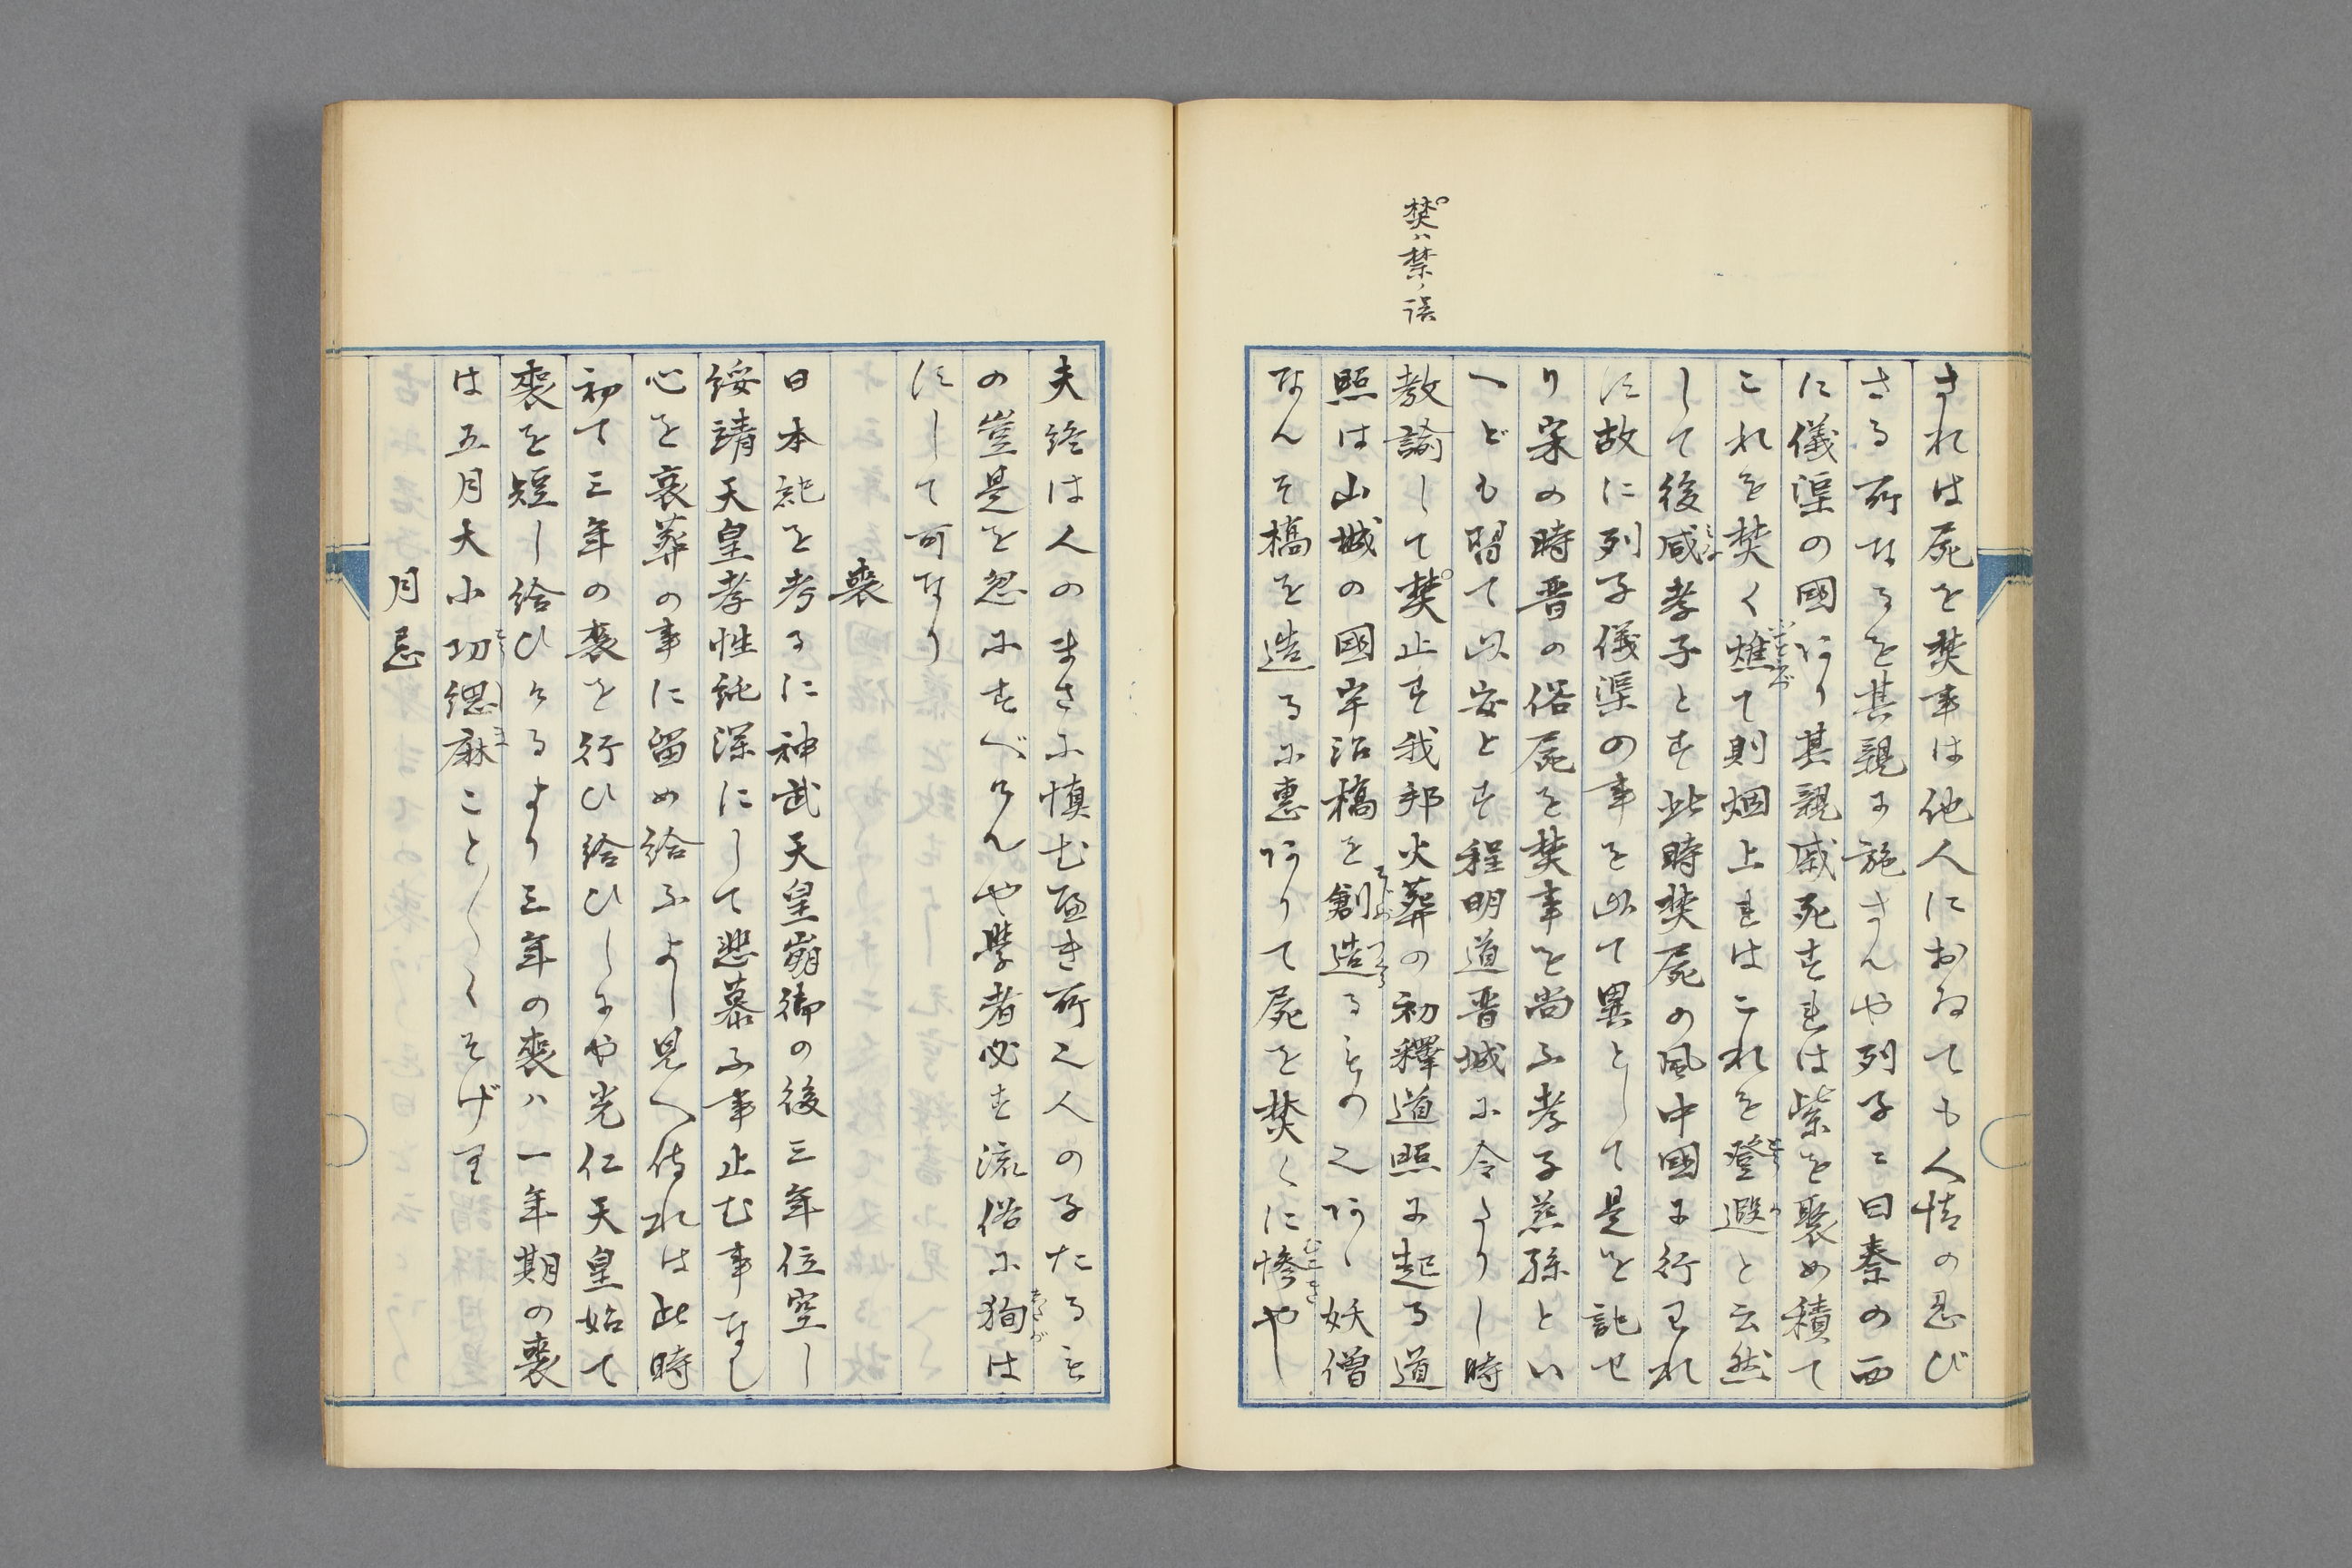 焚ハ禁ノ誤
されは屍を焚事は他人におゐても人情の忍び
さる所なるを其親に施さんや列子ニ曰秦の西
に儀渠の國あり其親戚死すれは柴を聚め積て
これを焚く燻て則烟上れはこれを登遐と云然
して後咸孝子とす此時焚屍の風中國に行われ
す故に列子儀渠の事を以て異として是を記せ
り宋の時晋の俗屍を焚事を尚ふ孝子慈孫とい
へども習て以安とす程明道晋城に令たりし時
教諭して焚止す我邦火葬の初釋道照に起る道
照は山城の國宇治橋を創造るもの之あゝ妖僧
なんそ橋を造るに惠ありて屍を焚くに惨や
夫終は人のまさに慎むへき所之人の子たるも
の豈是を忽にすべけんや學者必す流俗に狥は
すして可なり
喪
日本記を考るに神武天皇崩御の後三年位空し
綏靖天皇孝性純深にして悲慕ふ事止む事なし
心を哀葬の事に留め給ふよし見へ侍れは此時
初て三年の喪を行ひ給ひしにや光仁天皇始て
喪を短し給ひけるより三年の喪ハ一年期の喪
は五月大小功緦麻こと〱くそげり
月忌